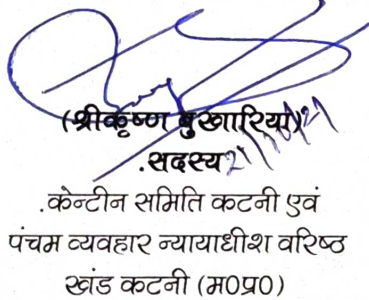 (श्रीकृष्ण बुखारिया)
.सदस्य
.केन्टीन समिति कटनी एवं
पंचम व्यवहार न्यायाधीश वरिष्ठ
खंड कटनी (म0प्र0)